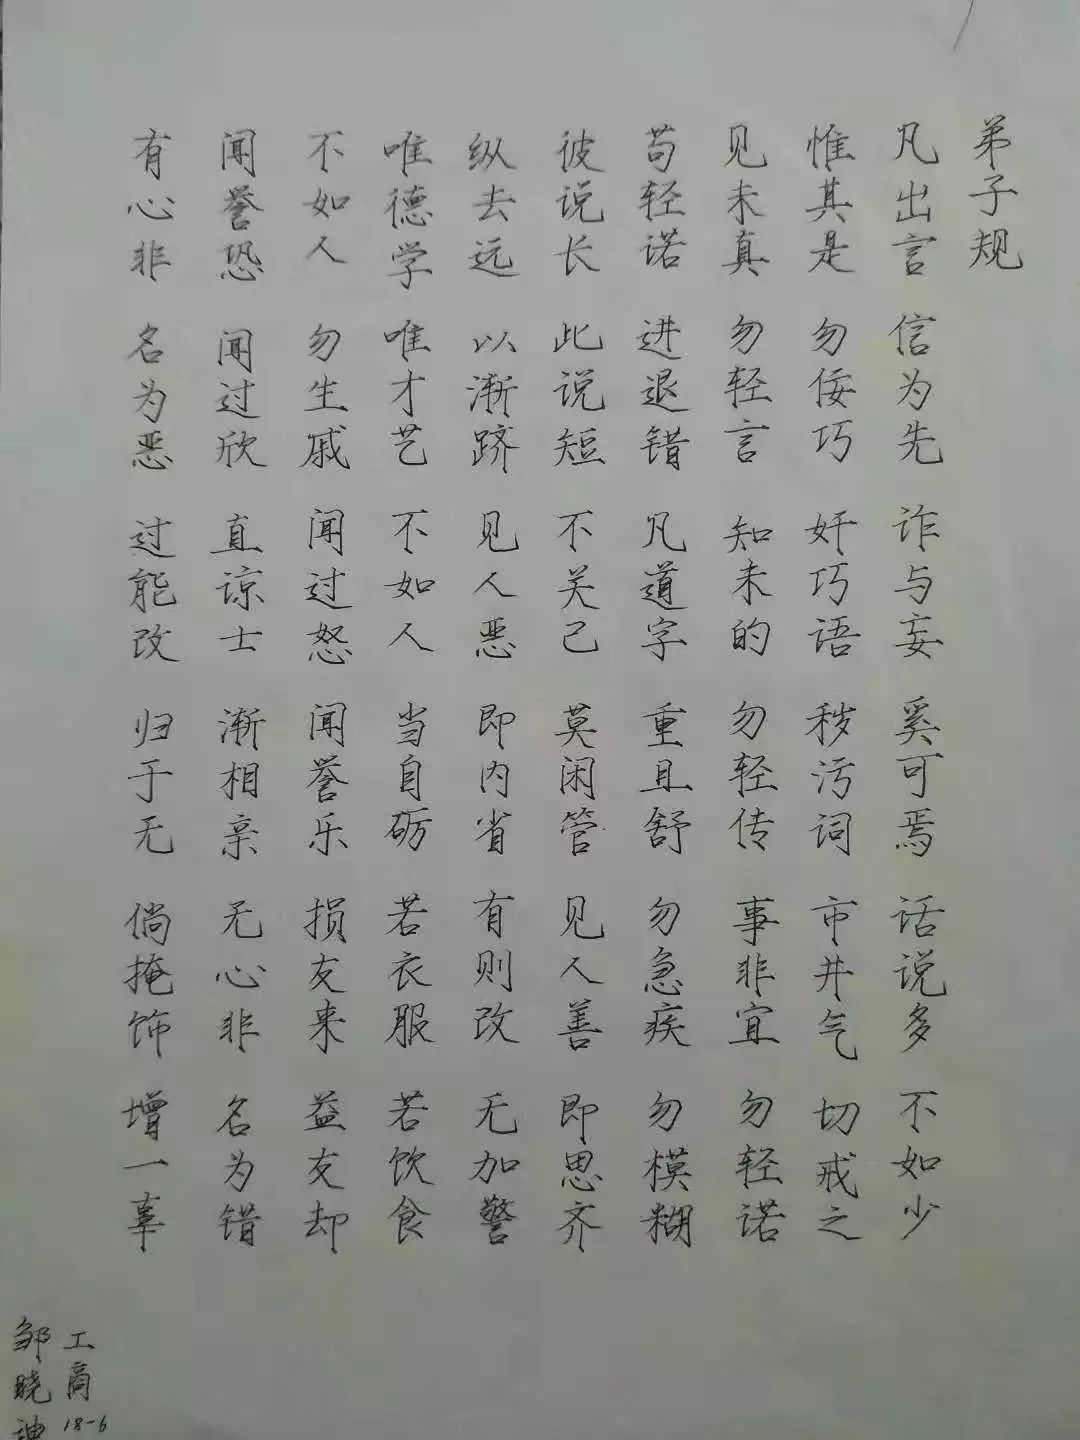 弟子规
凡出言 信为先 诈与妄 奚可焉 话说多 不如少
惟其是 勿佞巧 奸巧语 秽污词 市井气 切戒之
见未真 勿轻言 知未的 勿轻传 事非宜 勿轻诺
苟轻诺 进退错 凡道字 重且舒 勿急疾 勿模糊
彼说长 此说短 不关己 莫闲管 见人善 即思齐
纵去远 以渐跻 见人恶 即内省 有则改 无加警
唯德学 唯才艺 不如人 当自砺 若衣服 若饮食
不如人 勿生戚 闻过怒 闻誉乐 损友来 益友却
闻誉恐 闻过欣 直谅士 渐相亲 无心非 名为错
有心非 名为恶 过能改 归于无 倘掩饰 增一辜
工商18-6
邹晓